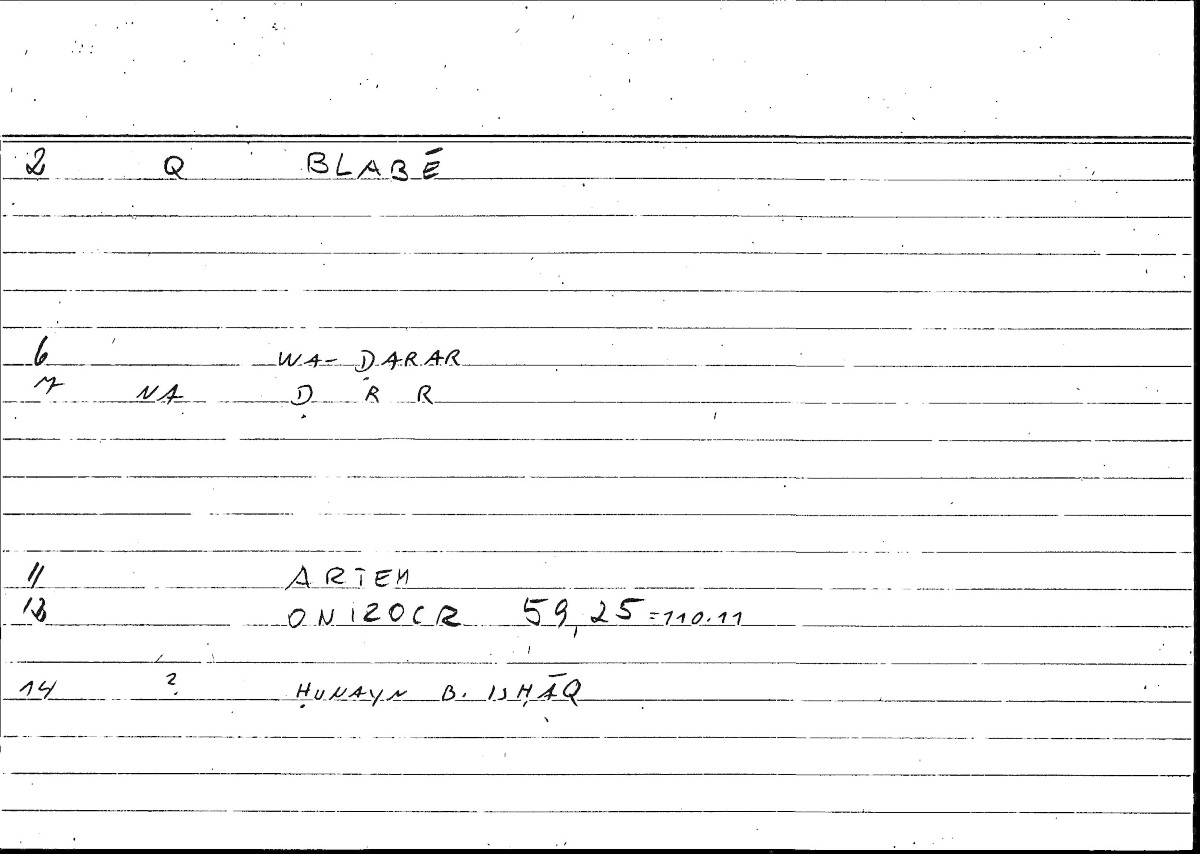 2 Q BLABĒ
6 WA- ḌARAR
7 NA Ḍ R R
11 ARTEM
13 ONIROCR 59,25 =110.11
14 ? ḤUNAYN B. ISḤĀQ